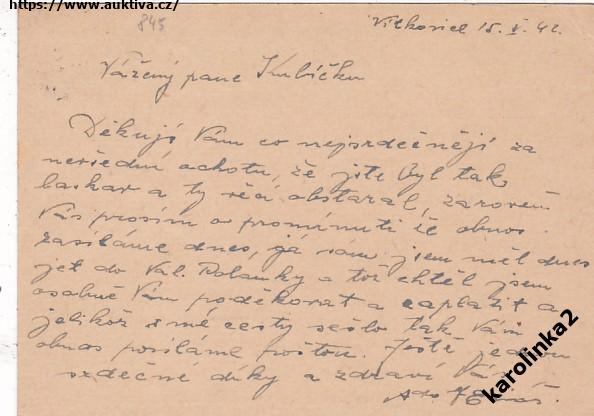 https://www.auktiva.cz/
845
Vítkovice 15. V. 42.
Vážený pane Kubíčku
Děkuji Vám co nejsrdečněji za
nevšední ochotu, že jste byl tak
laskav a ty věci obstaral, zároveň
Vás prosím o prominutí že obnos
zasíláme dnes, já sám jsem měl dnes
jet do Val. Polanky a též chtěl jsem
osobně Vám poděkovat a zaplatit a
jelikož s mé cesty sešlo tak Vám
obnos posíláme poštou. Ještě jednou
srdečné díky a zdraví Vás
karolinka2